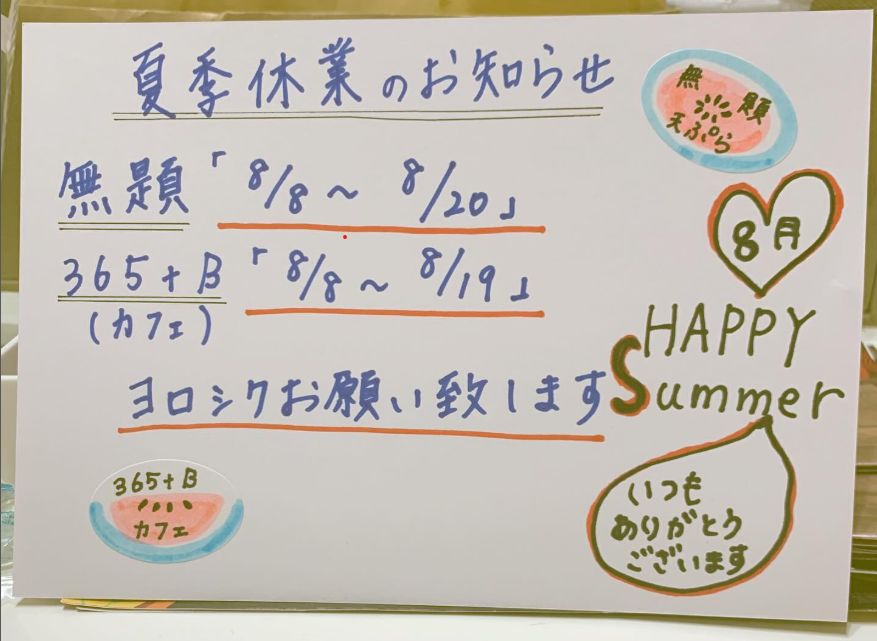 夏季休業のお知らせ
無題「8/8～8/20」
365+B「8/8～8/19」
(カフェ)
ヨロシクお願い致します
無題
天ぷら
8月
HAPPY
Summer
いつも
ありがとう
ございます
365+B
カフェ